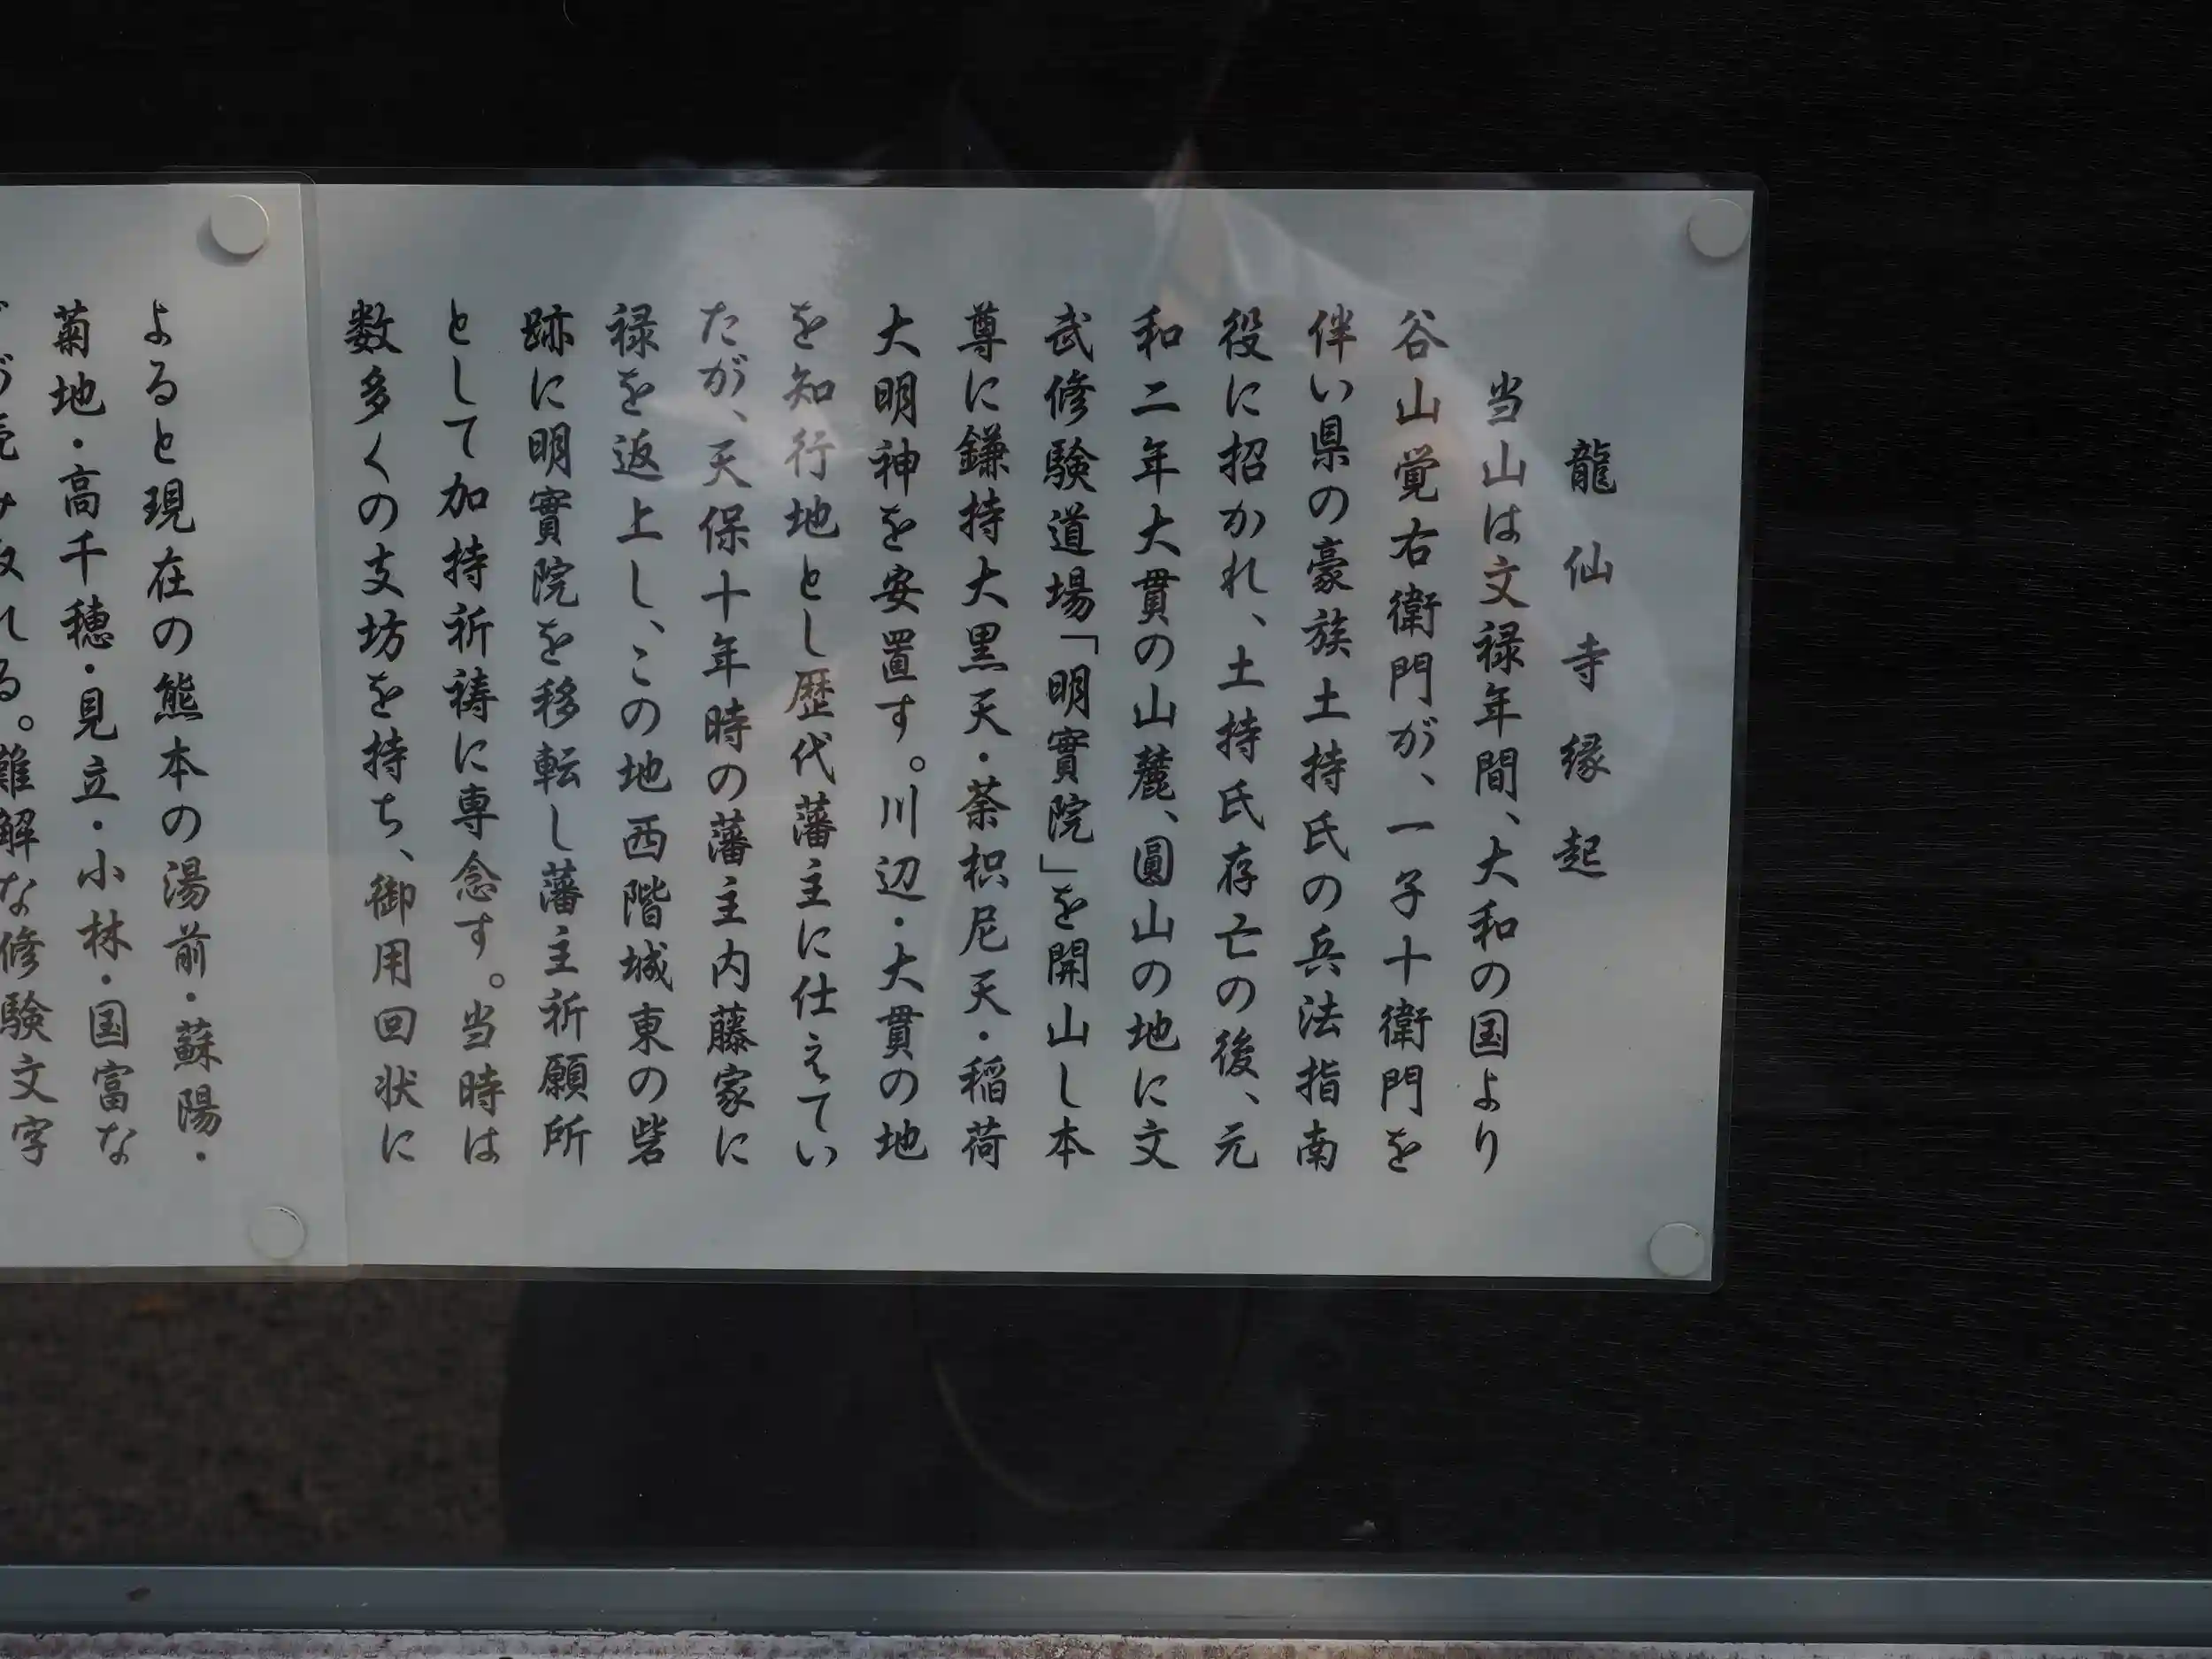 龍仙寺縁起
当山は文禄年間、大和の国より
谷山覚右衛門が、一子十衛門を
伴い県の豪族土持氏の兵法指南
役に招かれ、土持氏存亡の後、元
和二年大貫の山麓、圓山の地に文
武修験道場「明實院」を開山し本
尊に鎌持大黒天・荼枳尼天・稲荷
大明神を安置す。川辺・大貫の地
を知行地とし歴代藩主に仕えてい
たが、天保十年時の藩主内藤家に
禄を返上し、この地西階城東の砦
跡に明實院を移転し藩主祈願所
として加持祈祷に専念す。当時は
数多くの支坊を持ち、御用回状に
よると現在の熊本の湯前・蘇陽・
菊地・高千穂・見立・小林・国富な
どが読み取れる。難解な修験文字